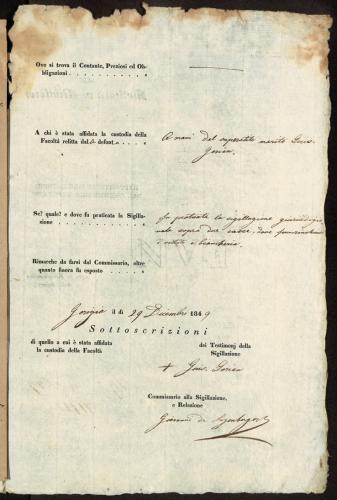 Ove si trova il Contante, Preziosi ed Ob-
bligazioni
A chi è stata affidata la custodia della
Facoltà relitta dal defont.
A mani del superstite marito Gius.
Se? quale? e dove fu praticata la Sigilla-
zione
Fu praticata la sigillazione giurisdizio
nale sopra due casse, dove
d'estate e biancheria.
Rimarche da farsi dal Commissario, oltre
quanto finora fu esposto
Gorizia il dì 29 Dicembre 1849
Sottoscrizioni
di quello a cui è stata affidata
la custodia della Facoltà
dei Testimonj della
Sigillazione
+ Gius.
Commissario alla Sigillazione,
e Relazione
Giovanni de